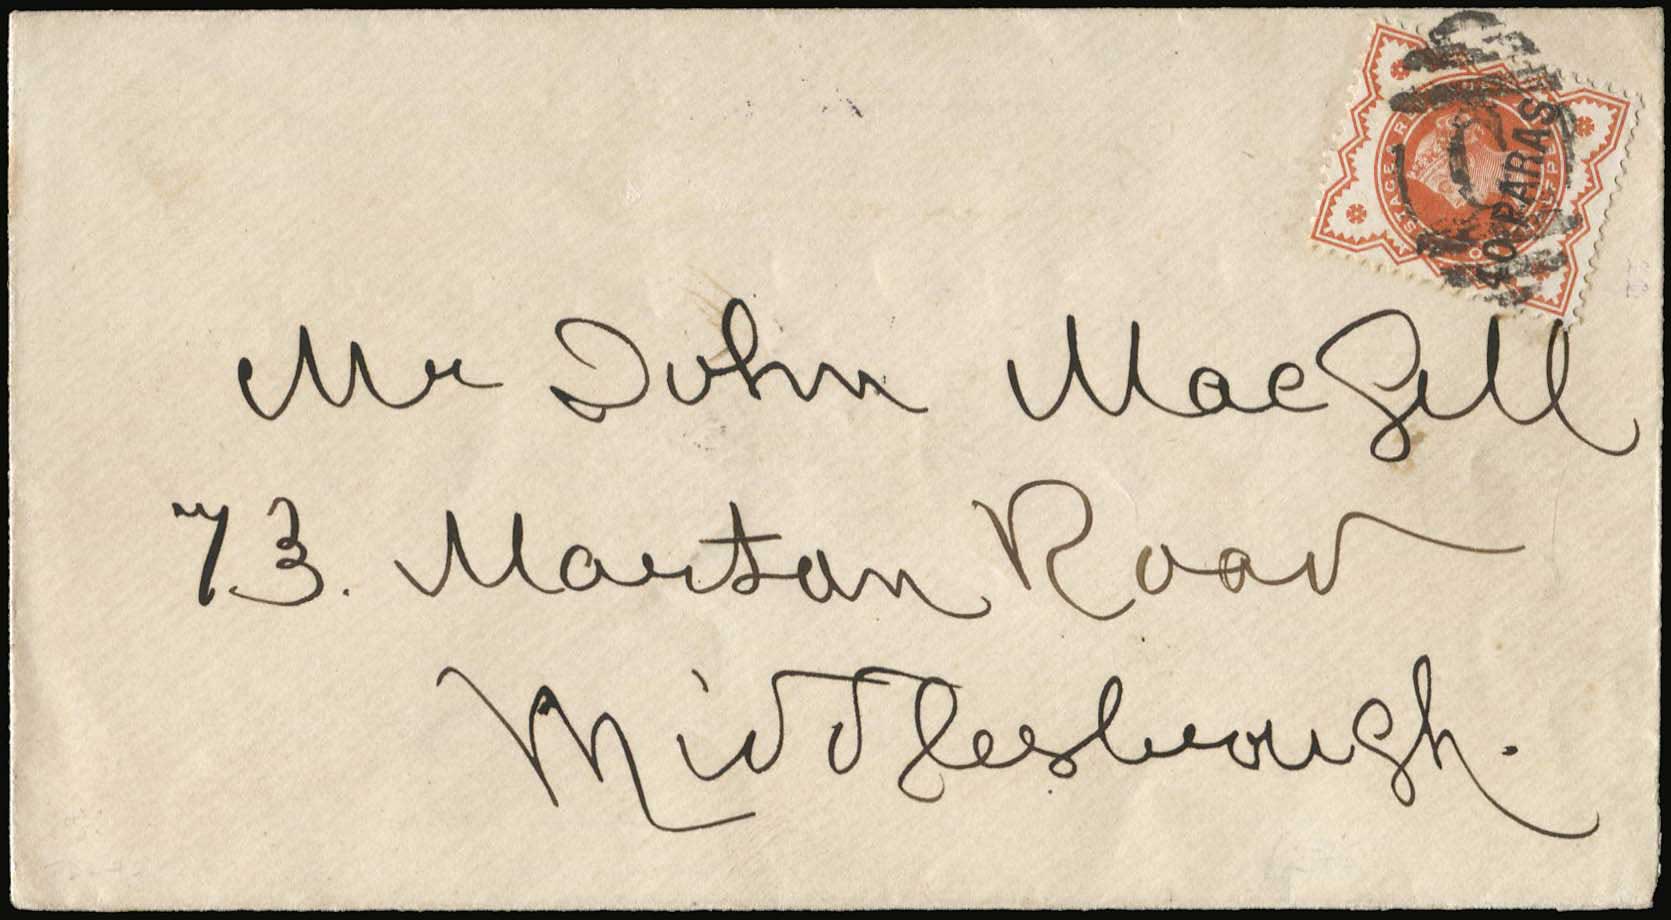 40 PARAS
Mr John MacGill
73. Marton Road
Middlesbrough.